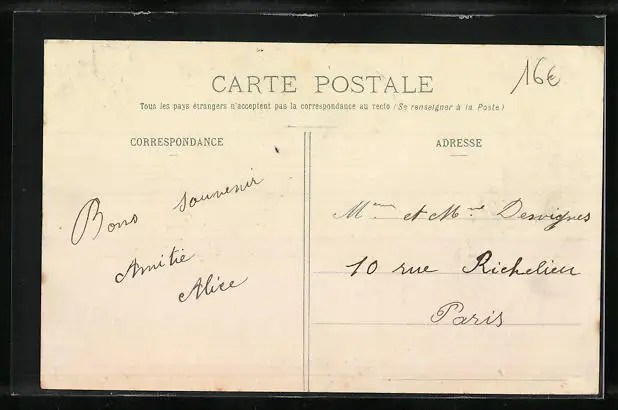 CARTE POSTALE
16€
Tous les pays étrangers n'acceptent pas la correspondance au recto (Se renseigner à la Poste)
CORRESPONDANCE
Bons souvenir
Amitie
Alice
ADRESSE
et Mme Desvignes
10 rue Richelieu
Paris